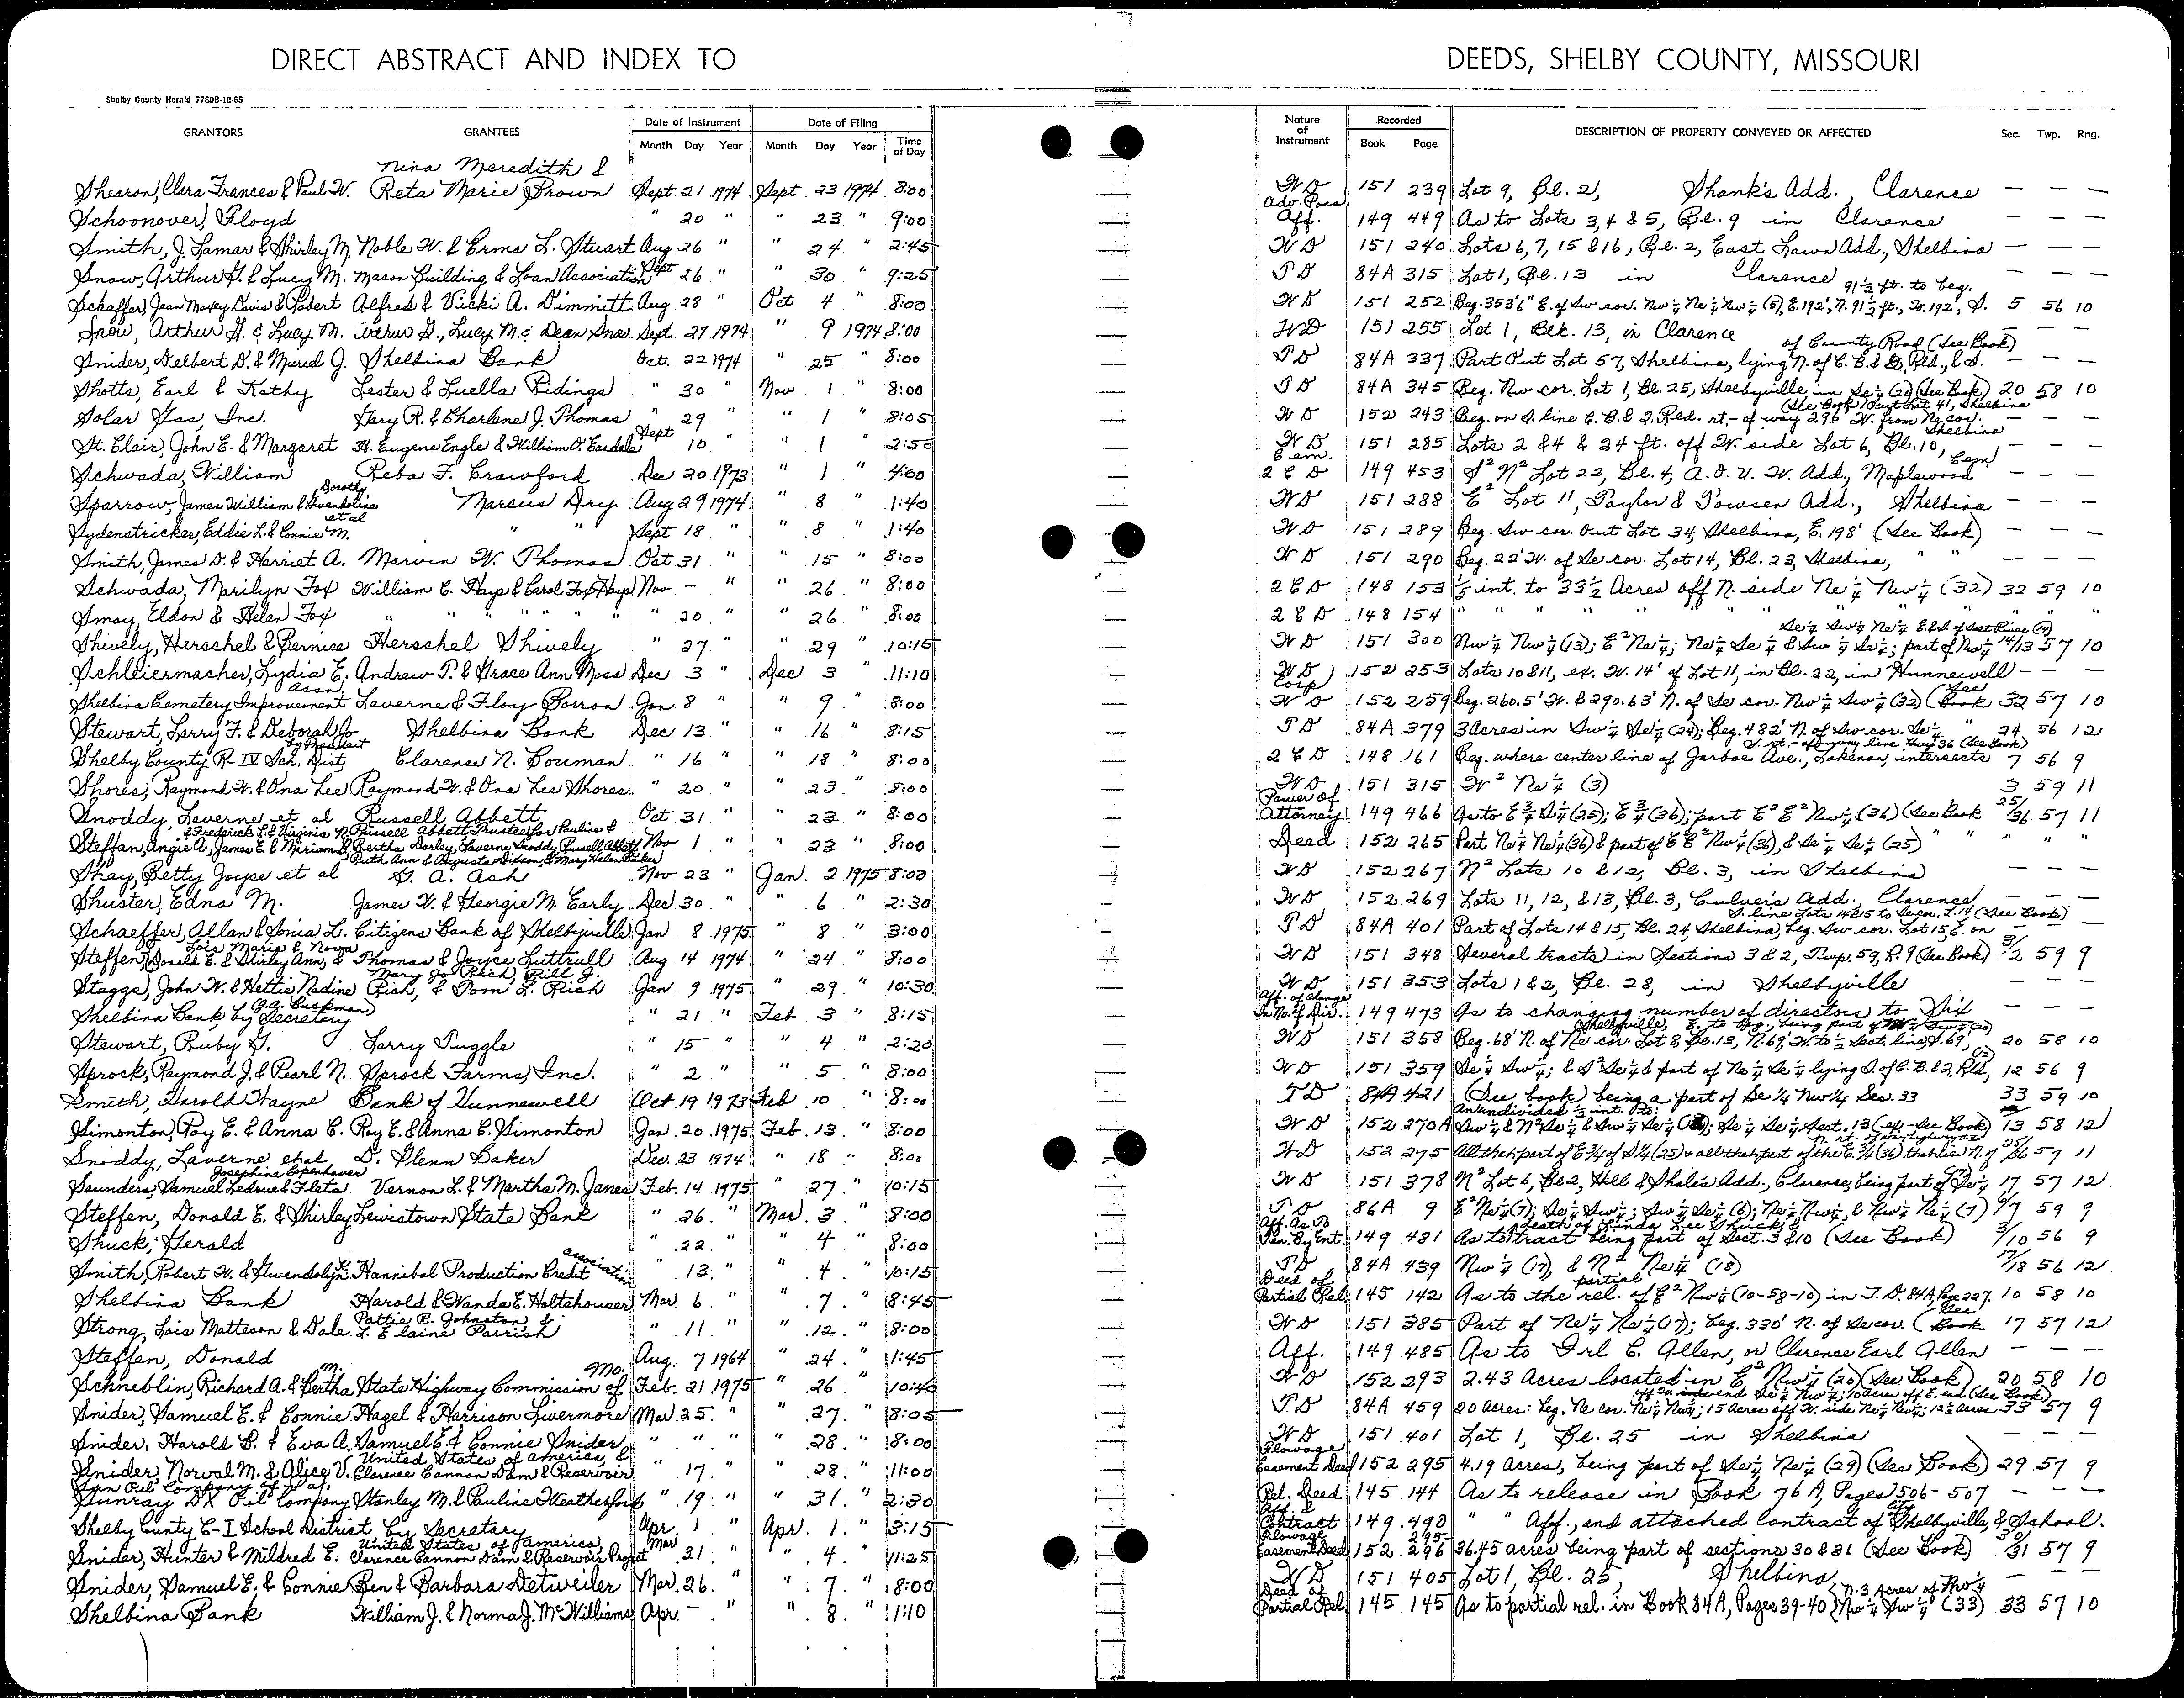 DIRECT ABSTRACT AND INDEX TO DEEDS, SHELBY COUNTY, MISSOURI
Shelby County Herald 7780B-10-65
GRANTORS GRANTEES Date of Instrument Month Day Year Date of Filing Month Day Year Time of Day Nature of Instrument Recorded Book Page DESCRIPTION OF PROPERTY CONVEYED OR AFFECTED Sec. Twp. Rng.
Nina Meredith &
Shearon, Clara Frances & Paul W. Reta Marie Brown Sept. 21 1974 Sept. 23 1974 8:00 WD 151 239 Lot 9, Bl. 2, Shank's Add., Clarence — — —
Schoonover, Floyd " 20 " " 23 " 9:00 Adv. Poss. Aff. 149 449 As to Lots 3, 4 & 5, Bl. 9 in Clarence — — —
Smith, J. Lamar & Shirley M. Noble W. & Erma L. Stuart Aug 26 " " 24 " 2:45 WD 151 240 Lots 6, 7, 15 & 16, Bl. 2, East Lawn Add., Shelbina — — —
Snow, Arthur G. & Lucy M. Macon Building & Loan Association Sept 26 " " 30 " 9:25 TD 84A 315 Lot 1, Bl. 13 in Clarence — — —
Schaffer, Jean Maxey Davis & Robert Alfred & Vicki A. Dimmitt Aug 28 " Oct 4 " 8:00 WD 151 252 Beg. 353'6" E. of Sw cor. Nw ¼ Ne ¼ Nw ¼ (5), E. 192', N. 91½ ft., W. 192', S. 91½ ft. to beg. 5 56 10
Snow, Arthur G. & Lucy M. Arthur G., Lucy M. & Dean Snow Sept 27 1974 " 9 1974 8:00 WD 151 255 Lot 1, Blk. 13, in Clarence — — —
Snider, Delbert D. & Muriel J. Shelbina Bank Oct. 22 1974 " 25 " 8:00 TD 84A 337 Part Out Lot 57, Shelbina, lying N. of C. B. & Q. Rd., & S. of County Road (See Book) — — —
Shotts, Earl & Kathy Lester & Luella Ridings " 30 Nov 1 " 8:00 TD 84A 345 Beg. Nw cor. Lot 1, Bl. 25, Shelbyville, in Se ¼ (20) (See Book) 20 58 10
Solar Gas, Inc. Gary R. & Charlene J. Thomas " 29 " 1 " 8:05 WD 152 243 Beg. on S. line C. B. & Q. Rd. rt.-of-way 296' W. from Ne cor. (See Book) Out Lot 41, Shelbina — — —
St. Clair, John E. & Margaret H. Eugene Engle & William D. Easdale Sept 10 " " 1 " 2:50 WD 151 285 Lots 2 & 4 & 24 ft. off W. side Lot 6, Bl. 10, Shelbina — — —
Schwada, William Reba F. Crawford Dec 20 1973 " 1 " 4:00 Cem. 2CD 149 453 S² N² Lot 22, Bl. 4, A. O. U. W. Add., Maplewood Cem. — — —
Sparrow, James William & Gwendoline Dorothy Marcus Dry Aug 29 1974 " 8 " 1:40 WD 151 288 E² Lot 11, Taylor & Towsen Add., Shelbina — — —
Sydenstricker, Eddie L. & Connie M. et al " " Sept 18 " " 8 " 1:40 WD 151 289 Beg. Sw cor. Out Lot 34, Shelbina, E. 198' (See Book) — — —
Smith, James D. & Harriet A. Marvin W. Thomas Oct 31 " " 15 " 8:00 WD 151 290 Beg. 22' W. of Se cor. Lot 14, Bl. 23, Shelbina, " " — — —
Schwada, Marilyn Fox William C. Hays & Carol Fox Hays Nov — " " 26 " 8:00 2CD 148 153 ⅕ int. to 33½ Acres off N. side Ne ¼ Nw ¼ (32) 32 59 10
Smay, Eldon & Helen Fox " " " " " 20 " " 26 " 8:00 2CD 148 154 " " " " " " " " " "
Shively, Herschel & Bernice Herschel Shively " 27 " 29 " 10:15 WD 151 300 Nw ¼ Nw ¼ (13); E² Ne ¼; Ne ¼ Se ¼ & Sw ¼ Se ¼; part of Nw ¼ Se ¼ Sw ¼ Ne ¼ E. & S. of Salt River (14) 14/13 57 10
Schleiermacher, Lydia E. Andrew P. & Grace Ann Moss Dec 3 " Dec. 3 " 11:10 WD 152 253 Lots 10 & 11, ex. W. 14' of Lot 11, in Bl. 22, in Hunnewell — — —
Shelbina Cemetery Improvement Assn. Laverne & Floy Borron Jan 8 " " 9 " 8:00 Corp. WD 152 259 Beg. 260.5' W. & 290.63' N. of Se cor. Nw ¼ Sw ¼ (32) (See Book 32 57 10
Stewart, Larry F. & Deborah Jo Shelbina Bank Dec. 13 " " 16 " 8:15 TD 84A 379 3 Acres in Sw ¼ Se ¼ (24); Beg. 482' N. of Sw cor. Se ¼ " 24 56 12
Shelby County R-IV Sch. Dist. by President Clarence N. Bouman " 16 " " 18 " 8:00 2CD 148 161 Beg. where center line of Jarboe Ave., Lakenan, intersects S. rt.-of-way line Hwy 36 (See Book) 7 56 9
Shores, Raymond W. & Ona Lee Raymond W. & Ona Lee Shores " 20 " " 23 " 8:00 WD 151 315 W² Ne ¼ (3) 3 59 11
Snoddy, Laverne et al Russell Abbett Oct 31 " " 23 " 8:00 Power of Attorney 149 466 As to E ¾ S ¼ (25); E ¾ (36); part E² E² Nw ¼ (36) (See Book 25/36 57 11
Steffan, Angie A.; James E. & Miriam & Frederick L. & Virginia N. Russell Abbett, Trustee for Pauline & Bertha Darley, Laverne Snoddy, Russell Abbett Ruth Ann & Augusta Dixson, & Mary Helen Parker Nov 1 " " 23 " 8:00 Deed 152 265 Part Ne ¼ Ne ¼ (36) & part of E² E² Nw ¼ (36), & Se ¼ Se ¼ (25) " " "
Shay, Betty Joyce et al G. A. Ash Nov 23 " Jan. 2 1975 8:00 WD 152 267 N² Lots 10 & 12, Bl. 3, in Shelbina — — —
Shuster, Edna M. James V. & Georgie M. Early Dec 30 " " 6 " 2:30 WD 152 269 Lots 11, 12, & 13, Bl. 3, Culver's Add., Clarence — — —
Schaeffer, Allan & Sonia L. Citizens Bank of Shelbyville Jan 8 1975 " 8 " 3:00 TD 84A 401 Part of Lots 14 & 15, Bl. 24, Shelbina, beg. Sw cor. Lot 15, E. on S. line Lots 14 & 15 to Se cor. L. 14 (See Book) — —
Steffen, Donald E. & Shirley Ann, & Lois Marie & Nova Thomas & Joyce Luttrull Aug 14 1974 " 24 " 8:00 WD 151 348 Several tracts in Sections 3 & 2, Twp. 59, R. 9 (See Book) 3/2 59 9
Staggs, John W. & Hettie Nadine Mary Jo Rich, Bill J. Rich, & Tom L. Rich Jan. 9 1975 " 29 " 10:30 WD 151 353 Lots 1 & 2, Bl. 28, in Shelbyville — — —
Shelbina Bank, by Secretary (G.A. Buckman) " 21 " Feb 3 " 8:15 Aff. of Change In No. of Dir. 149 473 As to changing number of directors to Six — — —
Stewart, Ruby G. Larry Tuggle " 15 " " 4 " 2:20 WD 151 358 Beg. 68' N. of Ne cor. Lot 8 Bl. 13, Shelbyville, N. 69' W. to ½ Sect. line, S. 69', E. to Beg., being part of Sw ¼ (20) 20 58 10
Sprock, Raymond J. & Pearl N. Sprock Farms, Inc. " 2 " " 5 " 8:00 WD 151 359 Se ¼ Sw ¼; & S² Se ¼ & part of Ne ¼ Se ¼ lying S. of C. B. & Q. Rd., (12) 12 56 9
Smith, Harold Wayne Bank of Hunnewell Oct. 19 1973 Feb 10 " 8:00 TD 84A 421 (See book) being a part of Se ¼ Nw ¼ Sec. 33 33 59 10
Simonton, Roy E. & Anna C. Roy E. & Anna C. Simonton Jan. 20 1975 Feb. 13 " 8:00 WD 152 270A An undivided ½ int. to: Sw ¼ & N² Se ¼ & Sw ¼ Se ¼; Se ¼ Se ¼ Sect. 13 (ex.-See Book) 13 58 12
Snoddy, Laverne et al D. Glenn Baker Dec. 23 1974 " 18 " 8:00 WD 152 275 All that part of E ¾ of S ¼ (25) & all that part of the E. ¾ (36) that lies N. of 25/36 57 11
Saunders, Samuel Ledrue & Fleta Josephine Copenhaver Vernon L. & Martha M. Janes Feb. 14 1975 " 27 " 10:15 WD 151 378 N² Lot 6, Bl 2, Hill & Shale's Add., Clarence, being part of Se ¼ 17 57 12
Steffen, Donald E. & Shirley Lewistown State Bank " 26 " Mar. 3 " 8:00 TD 86A 9 E² Ne ¼ (7); Se ¼ Sw ¼; Sw ¼ Se ¼ (6); Ne ¼ Nw ¼, & Nw ¼ Ne ¼ (7) 6/7 59 9
Shuck, Herald " 22 " " 4 " 8:00 Aff. As To Ten. By Ent. 149 481 As to death of Linda Lee Shuck & tract being part of Sect. 3 & 10 (See Book) 3/10 56 9
Smith, Robert W. & Gwendolyn K. Hannibal Production Credit Association " 13 " " 4 " 10:15 TD 84A 439 Nw ¼ (17), & N² Ne ¼ (18) 17/18 56 12
Shelbina Bank Harold & Wanda E. Holtshouser Mar. 6 " " 7 " 8:45 Deed of Partial Rel. 145 142 As to the partial rel. of E² Nw ¼ (10-58-10) in T. D. 84A, Page 227. 10 58 10
Strong, Lois Matteson & Dale Pattie R. Johnston, & L. Elaine Parrish " 11 " " 12 " 8:00 WD 151 385 Part of Ne ¼ Ne ¼ (17); beg. 330' N. of Se cor. (See Book 17 57 12
Steffen, Donald Aug. 7 1964 " 24 " 1:45 Aff. 149 485 As to Irl C. Allen, or Clarence Earl Allen — — —
Schneblin, Richard A. & Bertha M. State Highway Commission of Mo. Feb. 21 1975 " 26 " 10:40 WD 152 293 2.43 Acres located in E² Nw ¼ (20) (See Book) 20 58 10
Snider, Samuel E. & Connie Hazel & Harrison Livermore Mar. 25 " " 27 " 8:05 TD 84A 459 20 Acres: beg. Ne cor. Ne ¼ Nw ¼; 15 Acres off W. side Ne ¼ Nw ¼; 12½ Acres off W. end Se ¼ Nw ¼; 10 Acres off E. end (See Book) 33 57 9
Snider, Harold B. & Eva A. Samuel E. & Connie Snider " " " " 28 " 8:00 WD 151 401 Lot 1, Bl. 25 in Shelbina — — —
Snider, Norval M. & Alice V. United States of America, & Clarence Cannon Dam & Reservoir " 17 " 28 " 11:00 Flowage Easement Deed 152 295 4.19 Acres, being part of Se ¼ Ne ¼ (29) (See Book) 29 57 9
Sun Oil Company of Pa.
Sunray DX Oil Company Stanley M. & Pauline Weatherford " 19 " " 31 " 2:30 Rel. Deed 145 144 As to release in Book 76 A, Pages 506-507 — — —
Shelby County C-I School District by Secretary Apr. 1 " Apr. 1 " 3:15 Aff. & Contract 149 490 " " Aff., and attached contract of City Shelbyville, & School.
Snider, Hunter & Mildred E. United States of America, Clarence Cannon Dam & Reservoir Project Mar 31 " " 4 " 11:25 Flowage Easement Deed 152 295-296 36.45 acres being part of sections 30 & 31 (See Book) 30/31 57 9
Snider, Samuel E. & Connie Ben & Barbara Detweiler Mar. 26 " " 7 " 8:00 WD 151 405 Lot 1, Bl. 25, Shelbina — — —
Shelbina Bank William J. & Norma J. McWilliams Apr. — " " 8 " 1:10 Deed of Partial Rel. 145 145 As to partial rel. in Book 84 A, Pages 39-40 {N. 3 Acres of Nw ¼ Nw ¼ Sw ¼ (33) 33 57 10